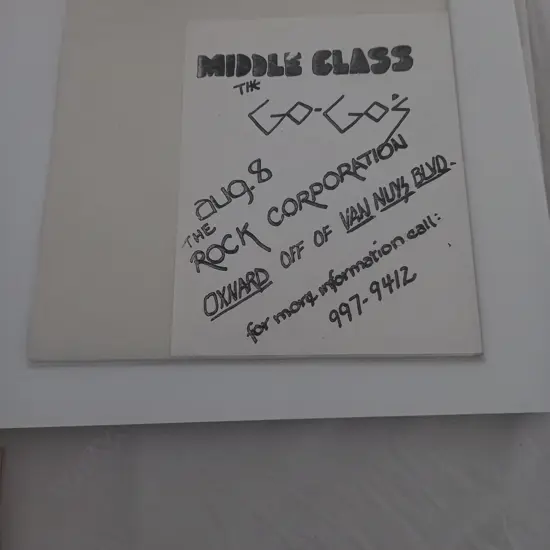 MIDDLE CLASS
THE
GO-GO'S
aug. 8
THE
ROCK CORPORATION
OXNARD OFF OF VAN NUYS BLVD.
for more information call:
997-9412